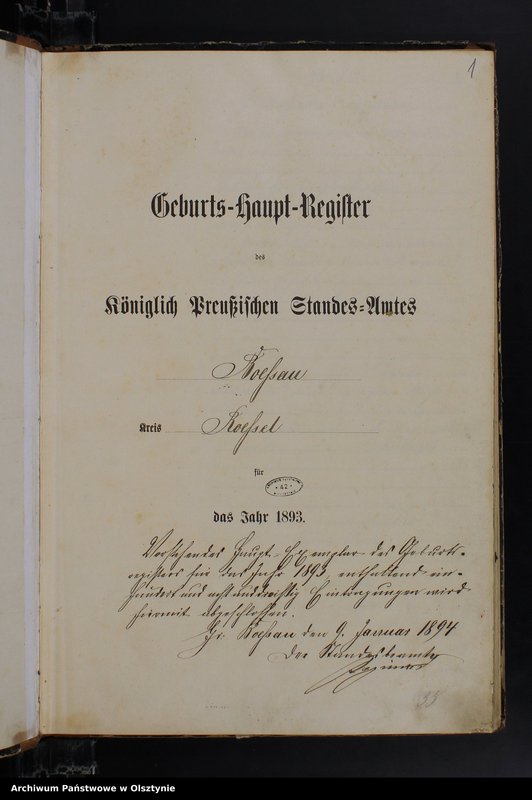 1
Geburts-Haupt-Register
des
Königlich Preußischen Standes-Amtes
Roessau
Kreis Roessel
für
42
das Jahr 1893.
Vorstehendes Haupt-Exemplar des Geburts-
registers für das Jahr 1893 enthaltend ein-
hundert und achtunddreißig Eintragungen wird
hiermit abgeschlossen.
Roessau den 9. Januar 1894
Der Standesbeamte
35
Archiwum Państwowe w Olsztynie